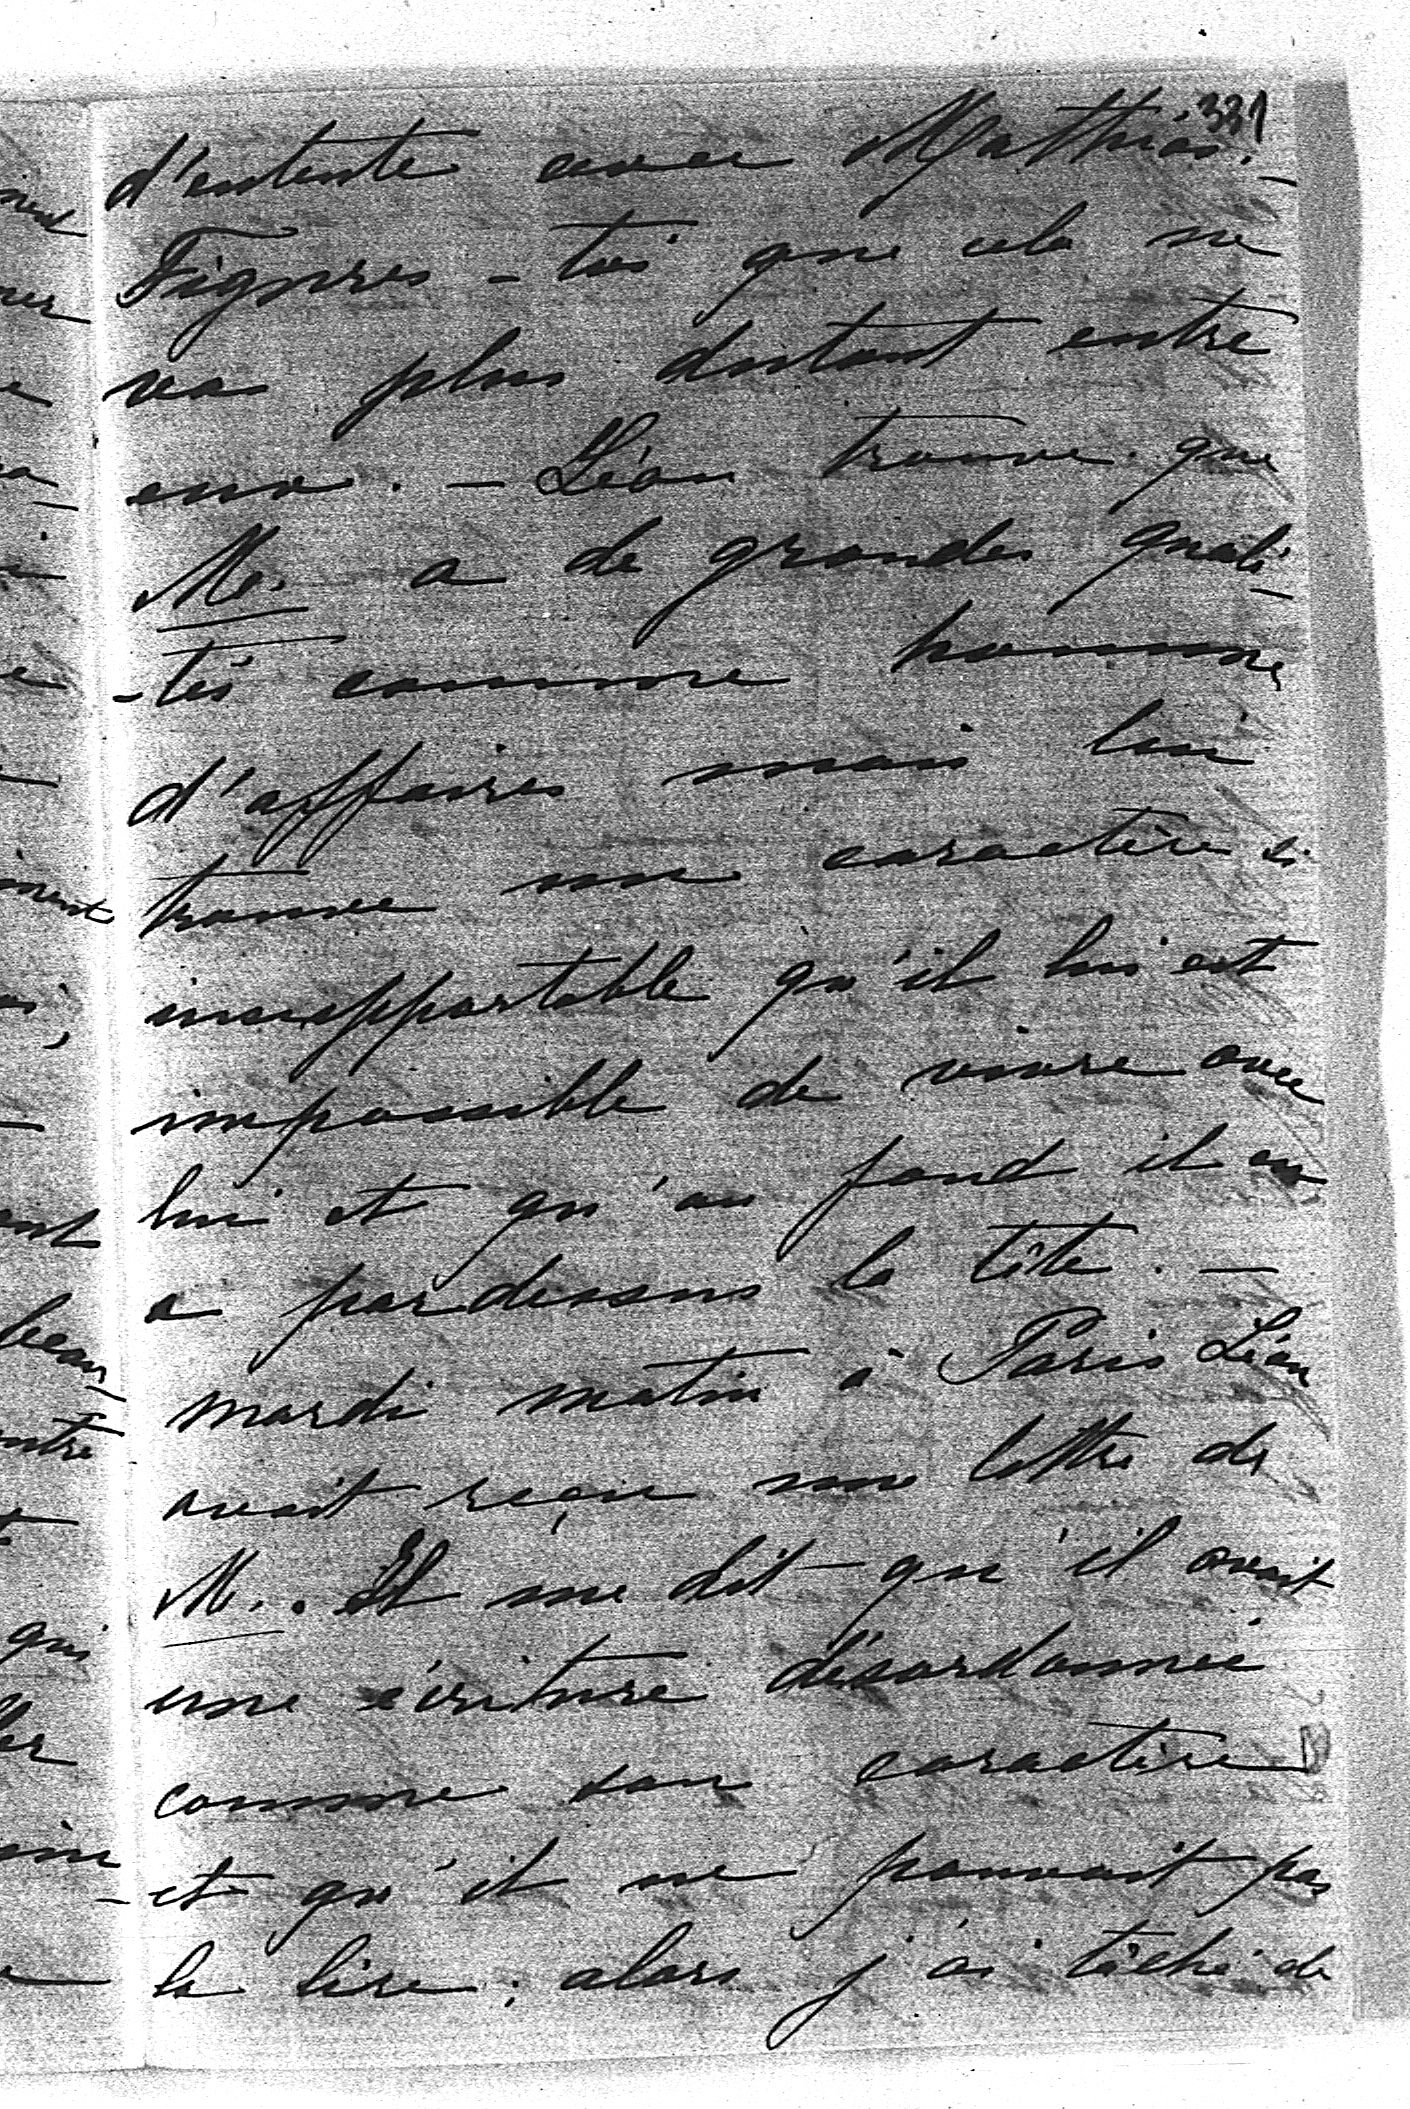 331
d'entente avec Mathias. -
Figures-toi que cela ne
va plus du tout entre
eux. - Léon trouve que
Me. a de grandes quali-
-tés comme homme
d'affaires mais lui
trouve un caractère si
insupportable qu'il lui est
impossible de vivre avec
lui et qu'au fond il en
a pardessus la tête. -
mardi matin à Paris Léon
avait reçu une lettre de
M.. Il me dit qu'il avait
une écriture désordonnée
comme son caractère
et qu'il ne pouvait pas
la lire; alors j'ai tâché de